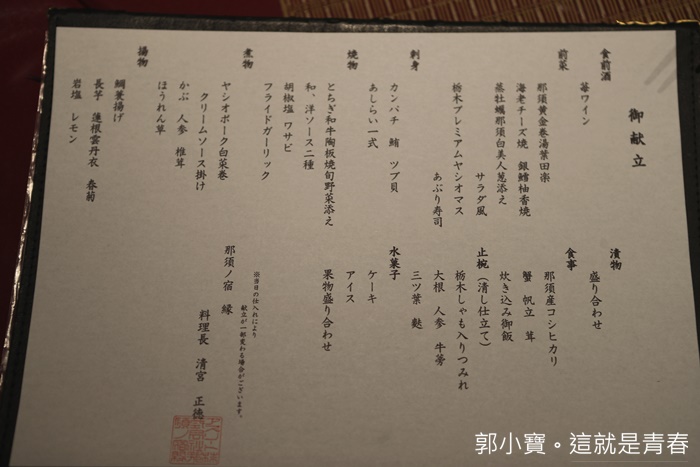 御献立
食前酒
苺ワイン
前菜
那須黄金巻湯葉田楽
海老チーズ焼 銀鱈柚香焼
蒸牡蠣那須白美人葱添え
サラダ風
栃木プレミアムヤシオマス
あぶり寿司
刺身
カンパチ 鮪 ツブ貝
あしらい一式
焼物
とちぎ和牛陶板焼旬野菜添え
和、洋ソース二種
胡椒塩 ワサビ
フライドガーリック
煮物
ヤシオポーク白菜巻
クリームソース掛け
かぶ 人参 椎茸
ほうれん草
揚物
鯛養揚げ
長芋 蓮根雲丹衣 春菊
岩塩 レモン
漬物
盛り合わせ
食事
那須産コシヒカリ
蟹 帆立 茸
炊き込み御飯
止椀(清し仕立て)
栃木しゃも入りつみれ
大根 人参 牛蒡
三ツ葉 麩
水菓子
ケーキ
アイス
果物盛り合わせ
※当日の仕入れにより
献立が一部変わる場合がございます。
那須ノ宿 縁
料理長 清宮 正徳
郭小寶。這就是青春